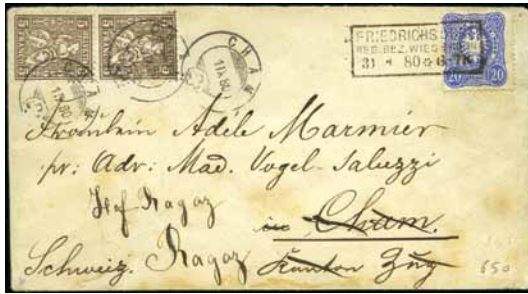 CHAM
CHAM
CHAM
FRIEDRICHSDORF
REG. BEZ. WIESB
31 80 6-7N
20 20
Fräulein Adèle Marmier
pr: Adr: Mad. Vogel-Saluzzi
Hof Ragaz
in Cham.
Schweiz. Ragaz Kanton Zug
650